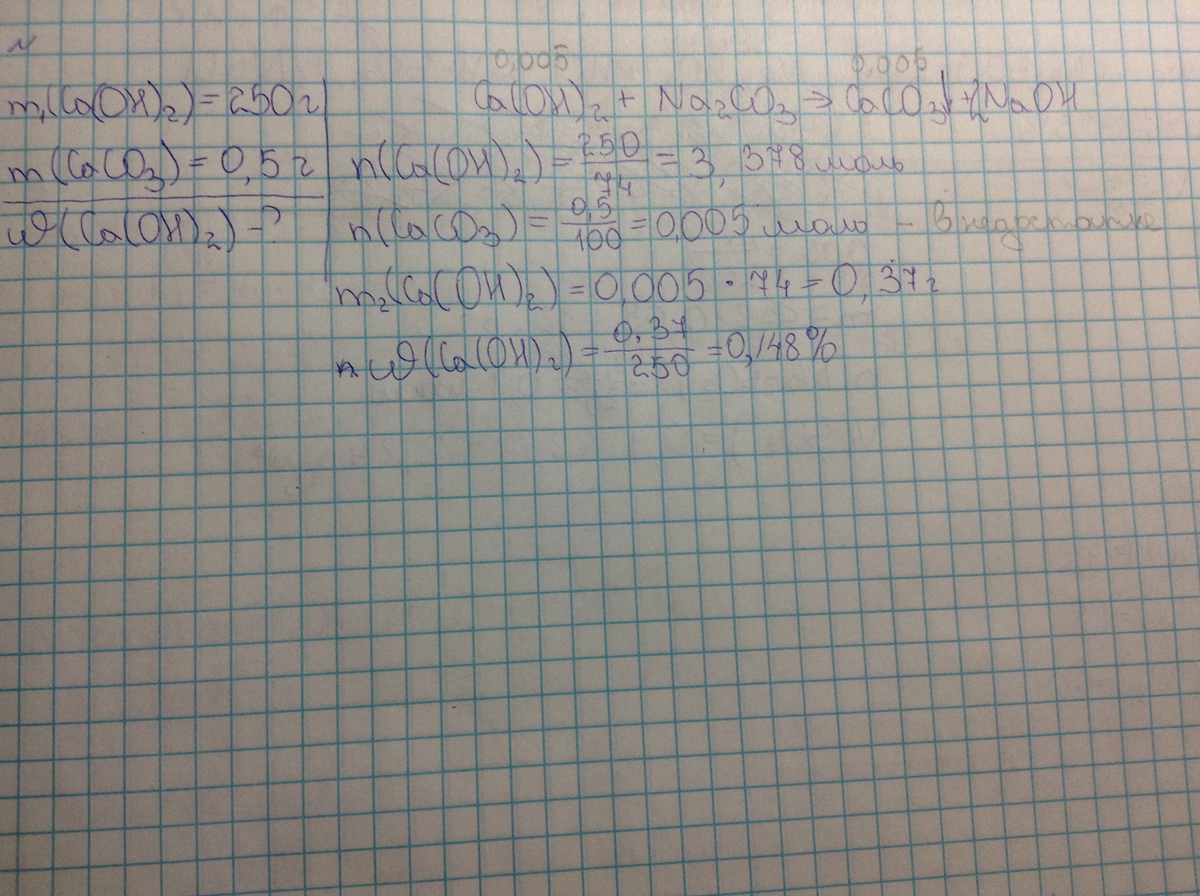 0,005 0,005
m₁(Ca(OH)₂) = 250 г
m(CaCO₃) = 0,5 г
ω(Ca(OH)₂) - ?
Ca(OH)₂ + Na₂CO₃ → CaCO₃↓ + 2NaOH
n(Ca(OH)₂) = 250/74 = 3,378 моль
n(CaCO₃) = 0,5/100 = 0,005 моль - в недостатке
m₂(Ca(OH)₂) = 0,005 · 74 = 0,37 г
ω(Ca(OH)₂) = 0,37/250 = 0,148%